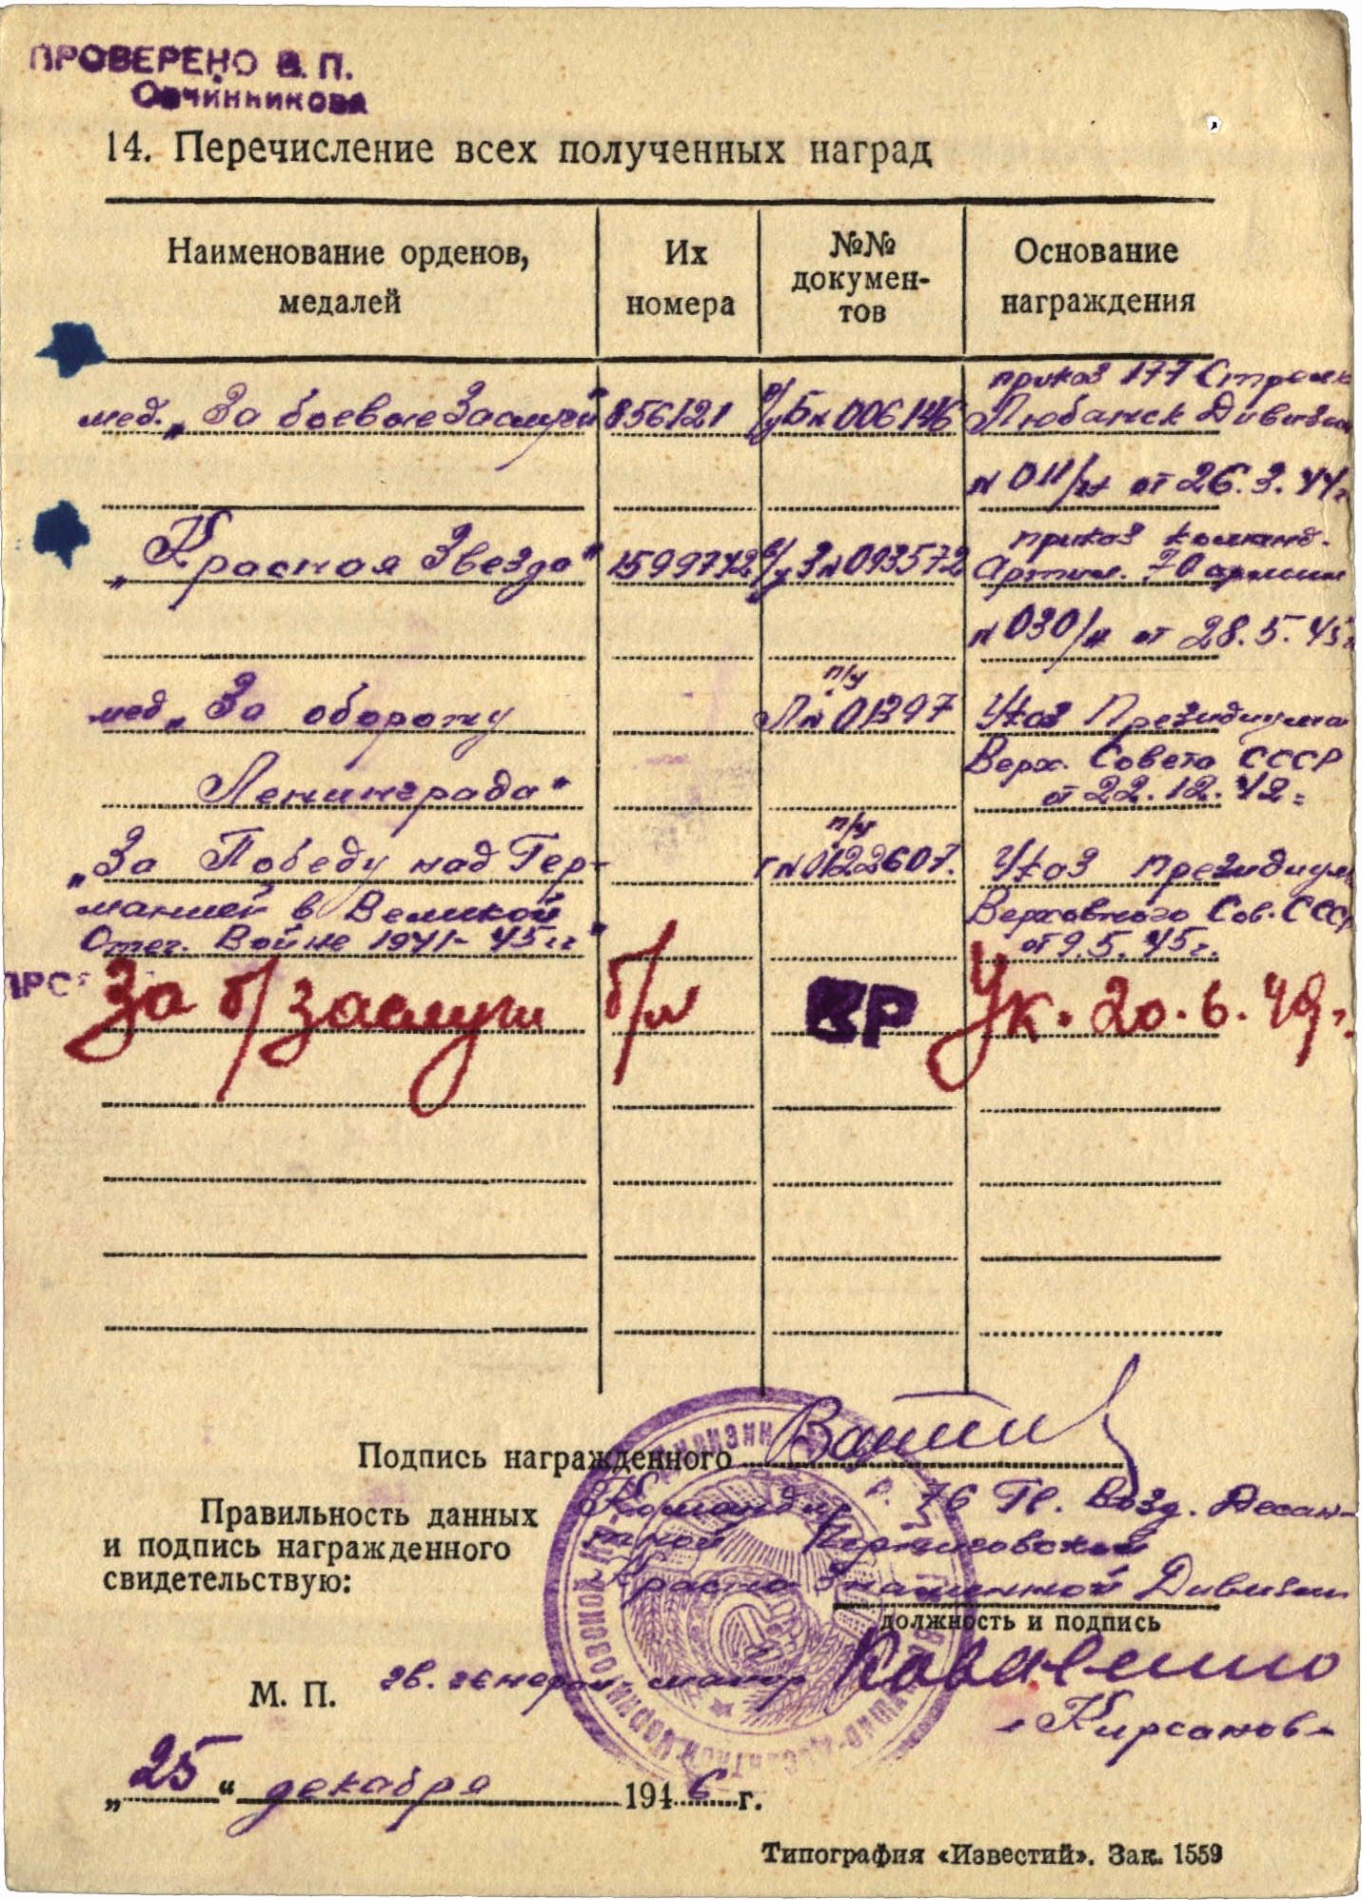 ПРОВЕРЕНО В. П.
Овчинникова
14. Перечисление всех полученных наград
Наименование орденов, медалей
Их номера
№№ докумен-
тов
Основание награждения
приказ 177 Стрелк
мед. „За боевые Заслуги" 856121 в/у Б№006146 Любанск Дивизии
№ 011/н от 26.3.44г
приказ команд.
„Красная Звезда" 1599742 в/у З№093572 Артил. 70 армии
№ 030/н от 28.5.45г
п/у
мед „За оборону Л№01397 Указ Президиума
Верх. Совета СССР
Ленинграда" от 22.12.42г
п/у
„За Победу над Гер- Г№0122607. Указ Президиум
манией в Великой Верховного Сов. СССР
Отеч. Войне 1941-45гг" от 9.5.45г.
ПРО
За б/заслуги б/н ВР Ук. 20.6.49г.
Подпись награжденного
Командир 76 Гв. Возд. Десан-
Правильность данных
и подпись награжденного
свидетельствую:
тной Черниговской
Красно Знаменной Дивизии
должность и подпись
М. П. гв. генерал майор
-Кирсанов-
„25" декабря 1946 г.
Типография «Известий». Зак. 1559